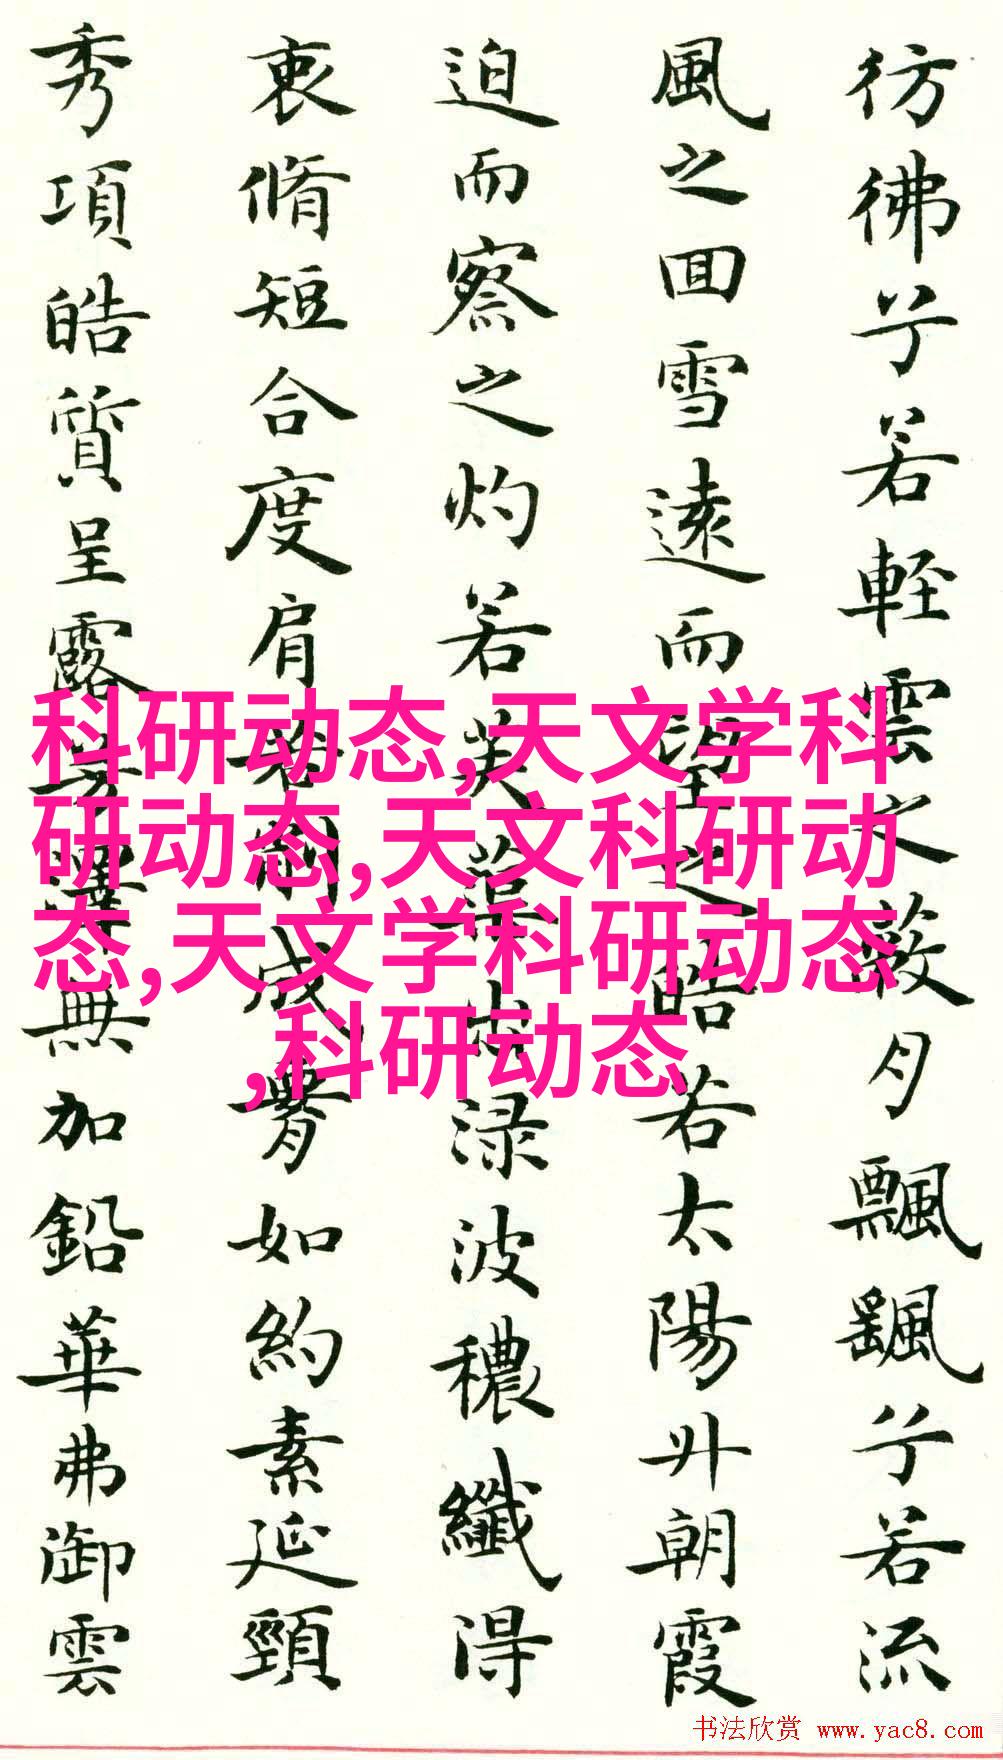 彷彿兮若輕雲之蔽月飄飖兮若流
風之回雪遠而望之皓若太陽升朝霞
迫而察之灼若芙蕖出渌波穠纖得
衷脩短合度肩若削成腰如約素延頸
秀項皓質呈露芳澤無加鉛華弗御雲
科研动态,天文学科
研动态,天文科研动
态,天文学科研动态
,科研动态
书法欣赏 www.yac8.com